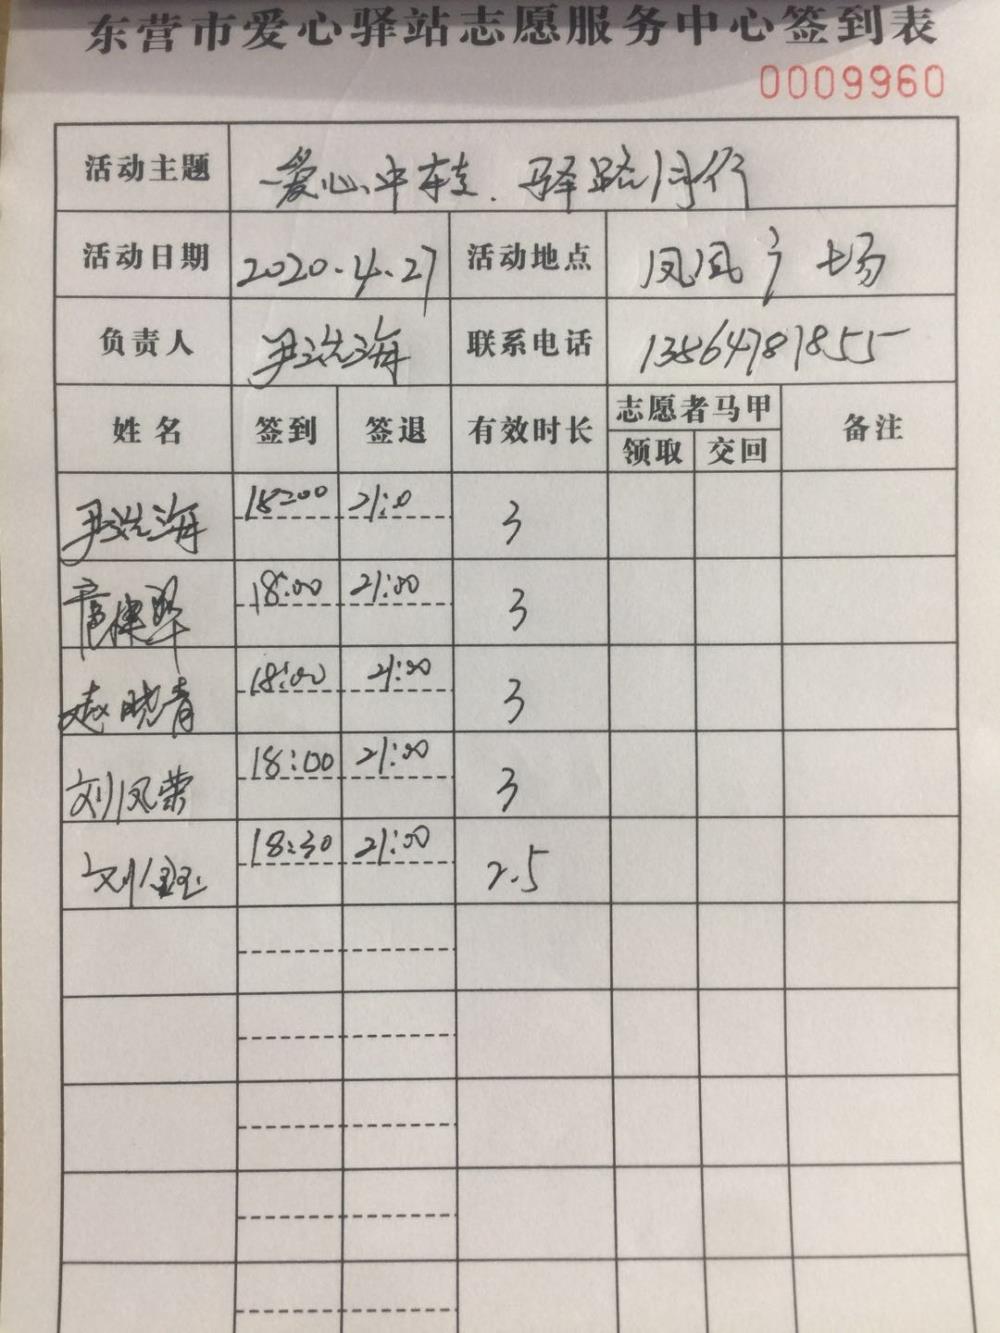 东营市爱心驿站志愿服务中心签到表
0009960
活动主题 爱心中转.驿路同行
活动日期 2020.4.27 活动地点 凤凰广场
负责人 尹洪海 联系电话 13864781855
姓名 签到 签退 有效时长 志愿者马甲 备注
领取 交回
尹洪海 18:00 21:0 3
18:00 21:00 3
赵晓青 18:00 21:00 3
刘凤荣 18:00 21:00 3
刘金玉 18:30 21:00 2.5